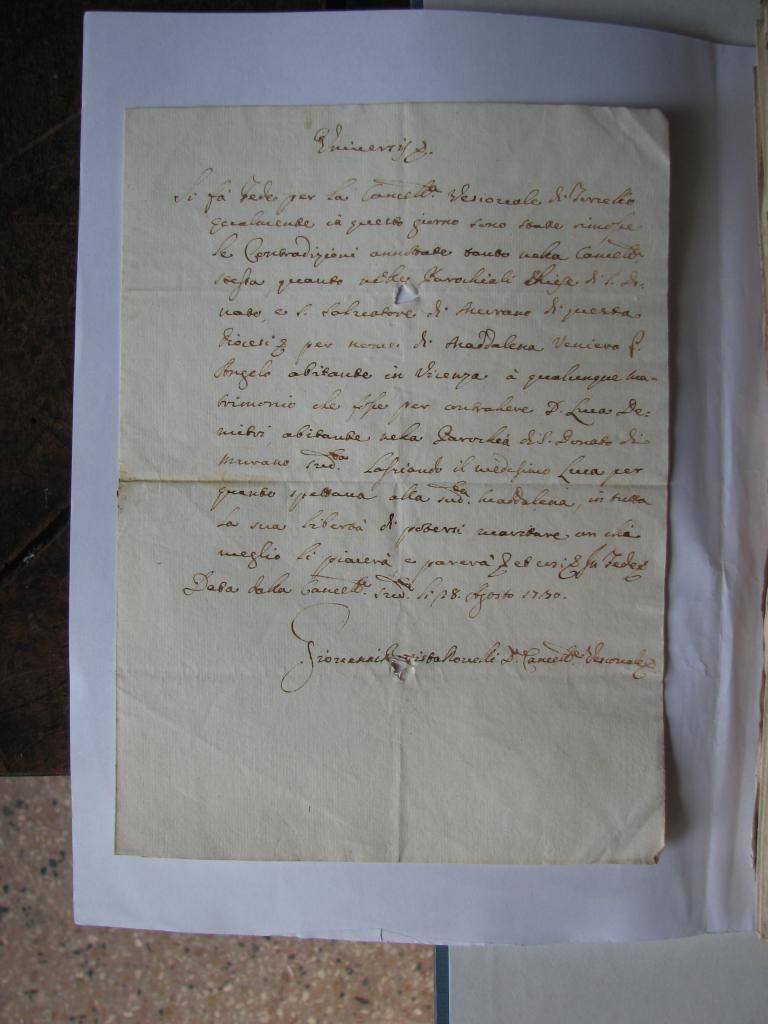 Universis &.
Si fà Fede per la Cancell.a Vescovale di Torcello
qualmente in questo giorno sono state rimosse
le Contradizioni annotate tanto nella Cancell.a
stessa quanto nelle Parochiali Chiese di S. Do:
nato, e S. Salvatore di Murano di questa
Diocesi & per nome di Maddalena Veniero
Angelo abitante in Vicenza à qualunque ma-
trimonio che fosse per contrahere D. Luca De:
mitri abitante nella Parochia di S. Donato di
Murano sud.to Lasciando il medesimo Luca per
quanto spettava alla sud.ta Maddalena, in tutta
la sua libertà di potersi maritare con chi
meglio li piacerà e parerà & et così & In Fede &
Data dalla Cancell.a sud.a li 28. Agosto 1730.
Giovanni Cancell.e Vescovale